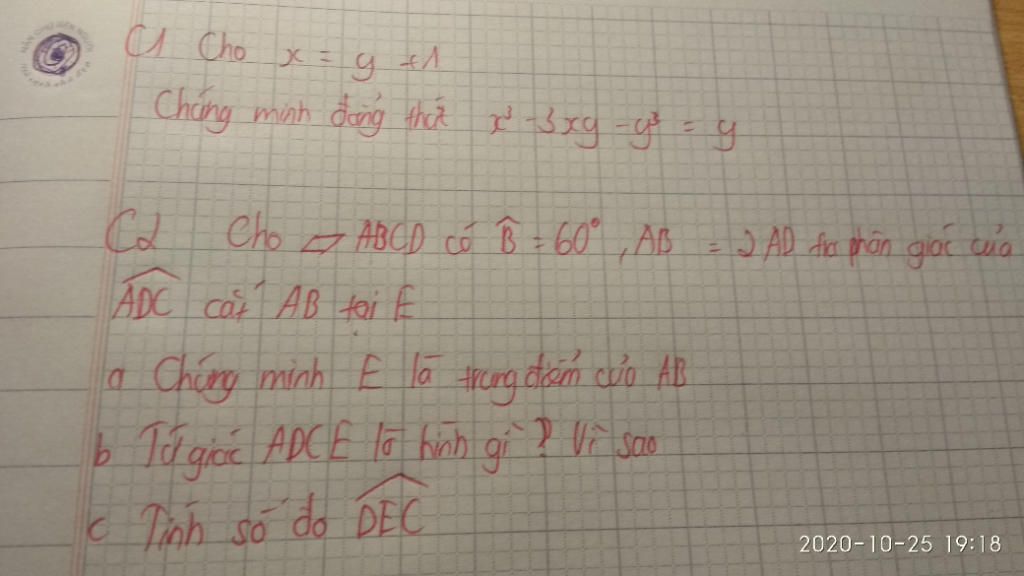 C1 Cho x = y + 1
Chứng minh đẳng thức x³ - 3xy - y³ = y
C2 Cho ▱ ABCD có B̂ = 60°, AB = 2 AD tia phân giác của
ADC cắt AB tại E
a Chứng minh E là trung điểm của AB
b Tứ giác ADCE là hình gì? Vì sao
c Tính số đo DEC
2020-10-25 19:18